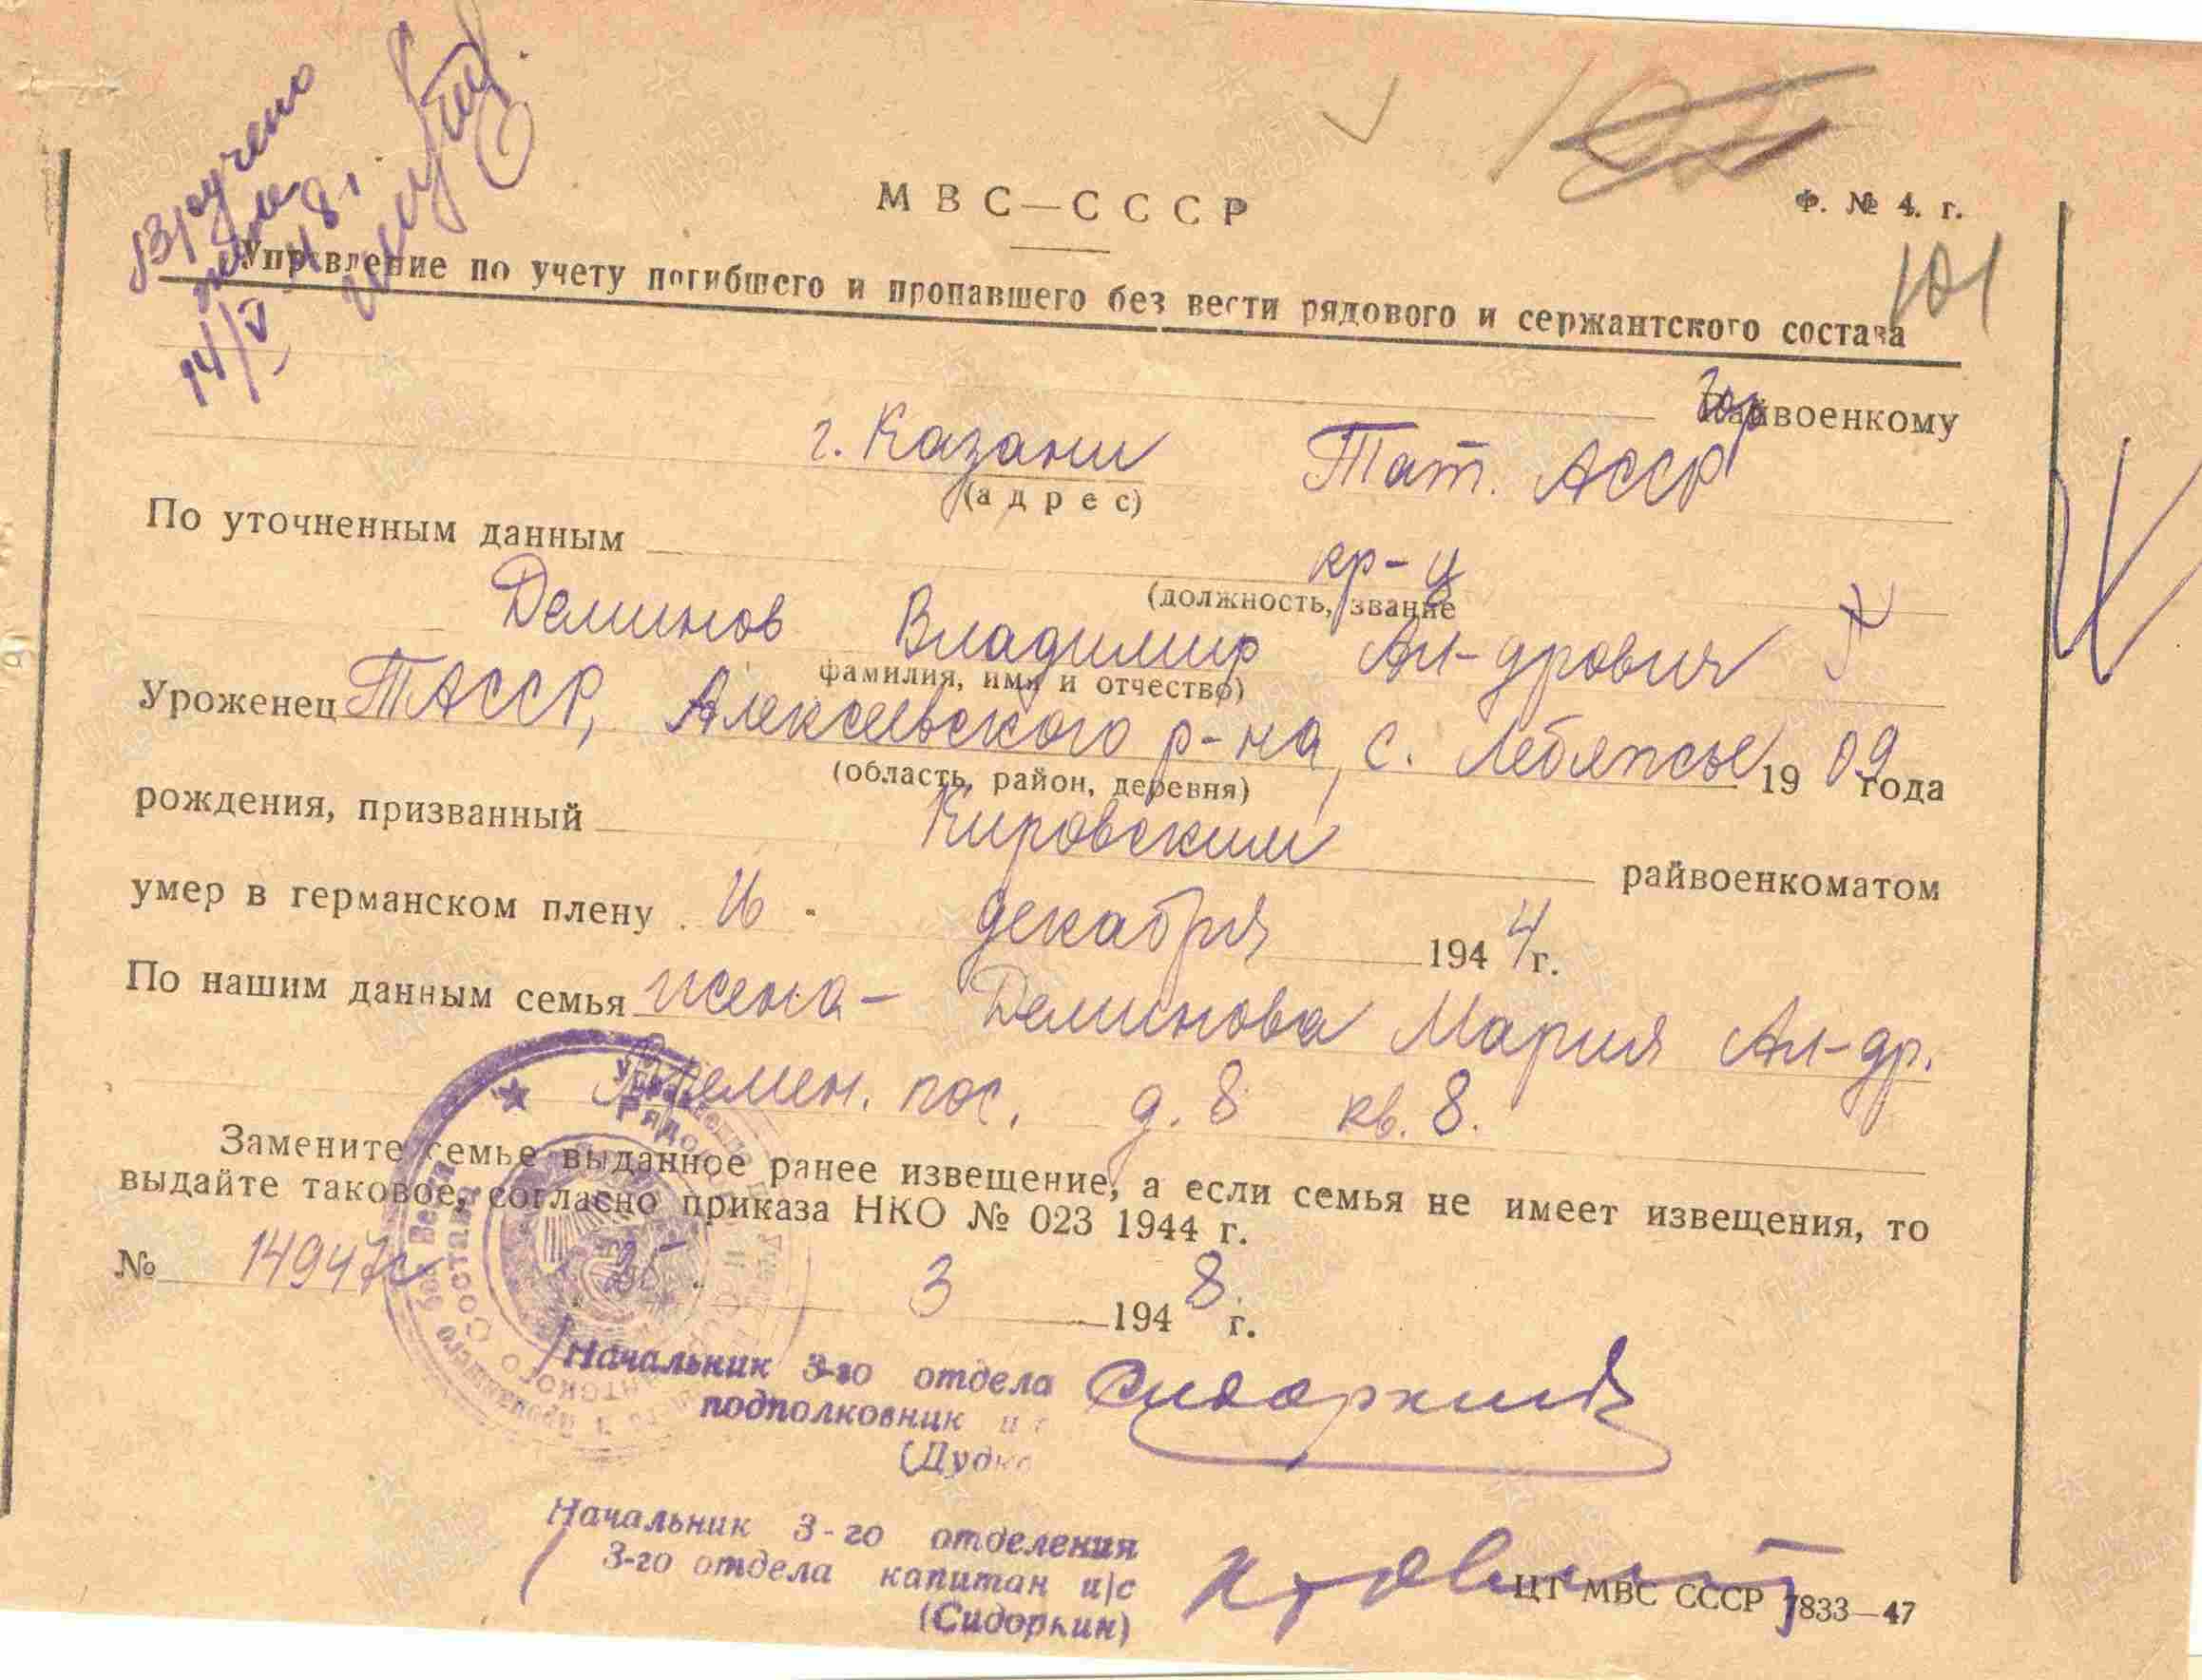 Вручено
14/V 48 г.
101
МВС—СССР
Ф. № 4. г.
Управление по учету погибшего и пропавшего без вести рядового и сержантского состава
Горвоенкому
г. Казани Тат. АССР
(адрес)
По уточненным данным кр-ц
(должность, звание
Деминов Владимир Ал-дрович
фамилия, имя и отчество)
Уроженец ТАССР, Алексеевского р-на, с. Лебяжье 1909 года
(область, район, деревня)
рождения, призванный Кировским райвоенкоматом
умер в германском плену 16 декабря 1944 г.
По нашим данным семья жена – Деминова Мария Ал-др.
Времен. пос. д. 8 кв. 8.
Замените семье выданное ранее извещение, а если семья не имеет извещения, то
выдайте таковое, согласно приказа НКО № 023 1944 г.
№ 14947с 25 3 1948 г.
Начальник 3-го отдела
подполковник
(Дудко
Сидоркин
Начальник 3-го отделения
3-го отдела капитан и/с
(Сидоркин)
ЦТ МВС СССР 7833—47